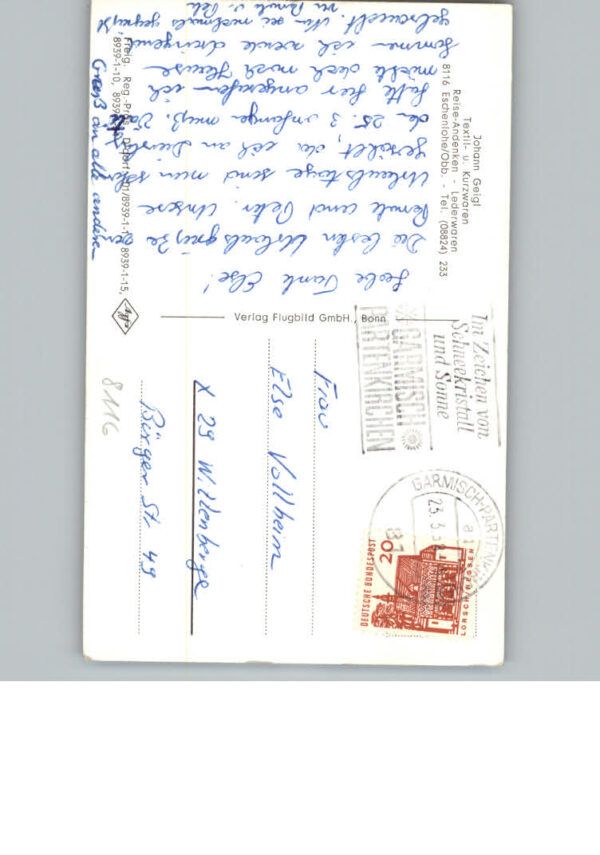 Johann Geigl
Textil- u. Kurzwaren
Reise-Andenken - Lederwaren
8116 Eschenlohe/Obb. - Tel. (08824) 233
Liebe Tante Else!
Die besten Urlaubsgrüße
und Petr. Unsere
Urlaubstage sind nun schon
gezählt, da ich am Dienst.
den 25. 3 anfangen muß. Va
hatte hier angerufen ich
möchte doch nach Hause
kommen ich werde dringend
gebraucht. Nun sei nochmals gegrüßt
Gruß an alle andere
Freig. Reg.-Präs.
8939-1-10, 8939
/8939-1-1
8939-1-15,
Agfa
Verlag Flugbild GmbH., Bonn
Im Zeichen von
Schneekristall
und Sonne
GARMISCH
PARTENKIRCHEN
GARMISCH-PARTENK
81
DEUTSCHE BUNDESPOST
20
LORSCH HESSEN
Frau
Else Vollheim
X 29 Wittenberge
Bürger St. 49
8116